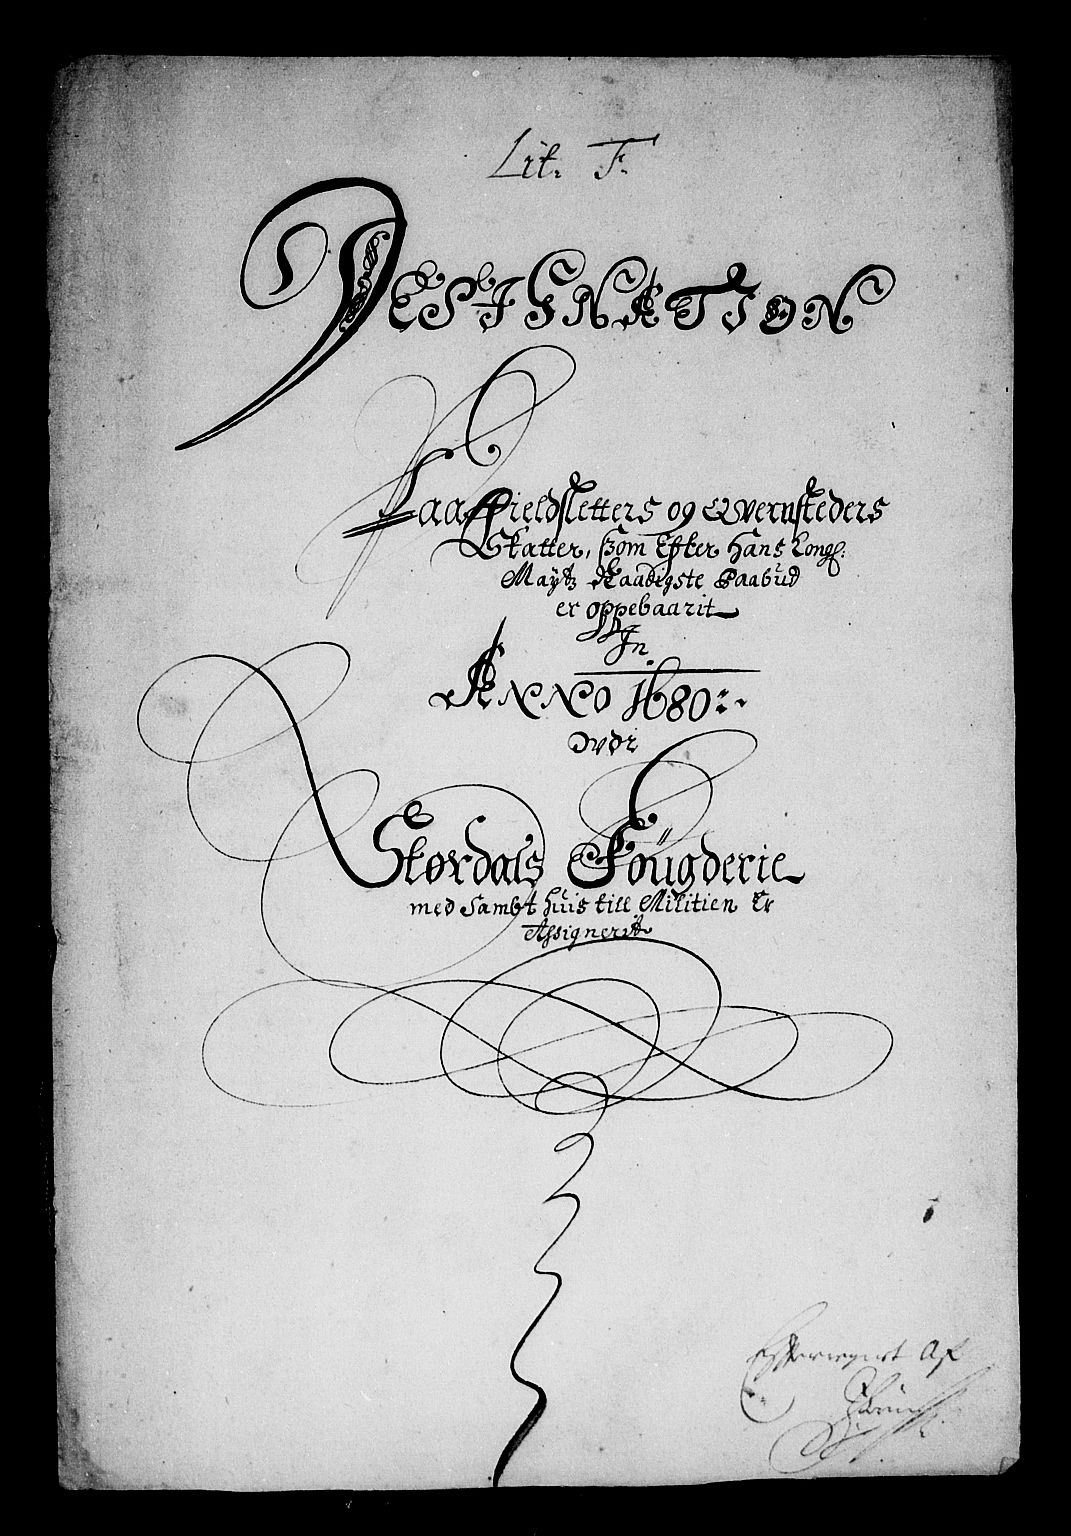 Lit. F.
DESIGNATION
Paa Fieldsletters og Qvernsteders
Skatter, som Efter Hans Kongl:
Maytz Naadigste Paabüd
er oppebaarit
In
ANNO 1680
Over
Størdals Foügderie
med Sambt hüis till Militien Er
Assignerit
Efterregnet Af